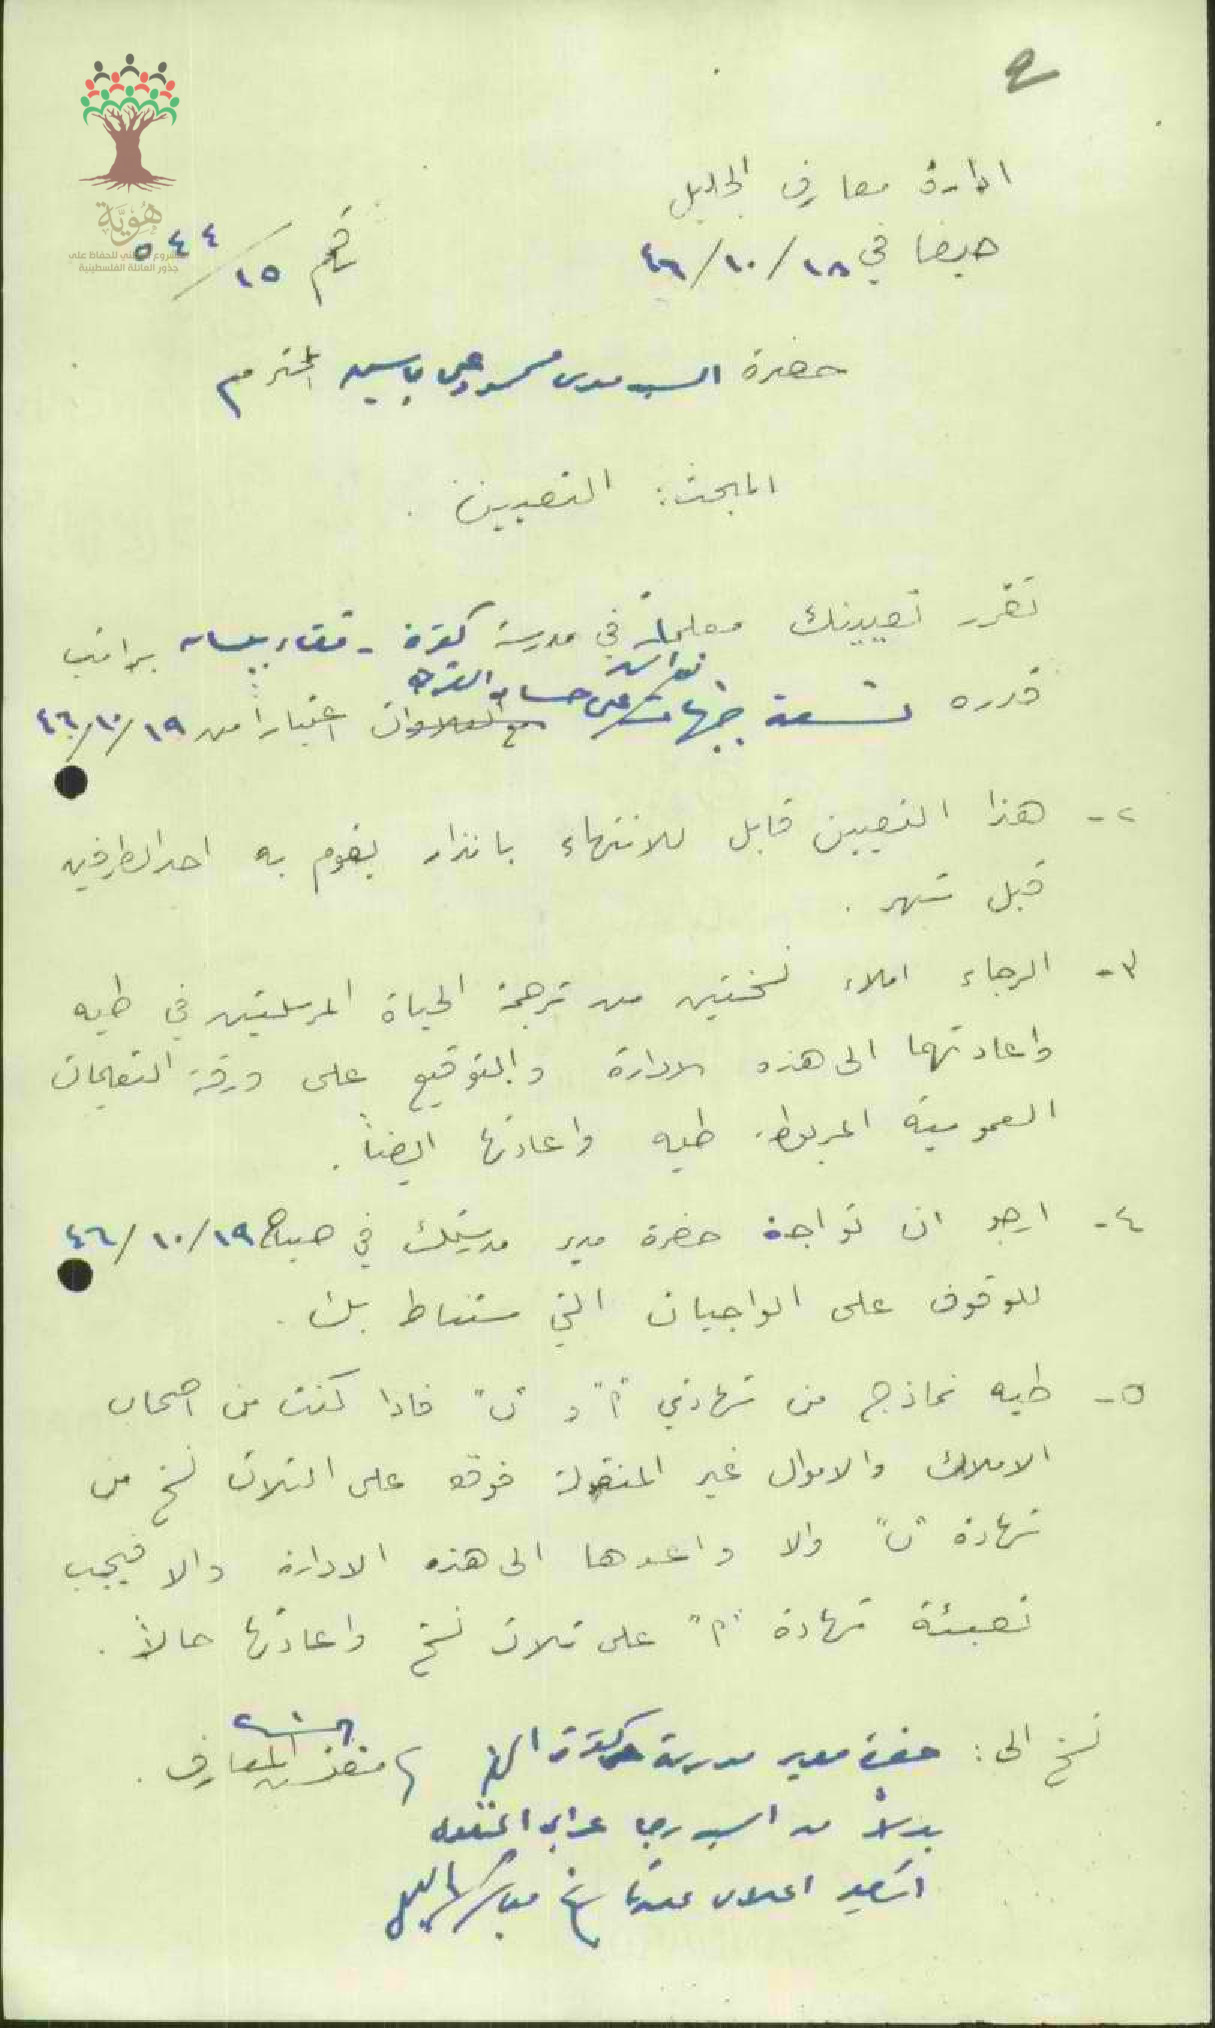 ٢
ادارة معارف الجليل
حيفا في ١٨/١٠/٤٦
رقم ١٥/٥٤٤
هُوِيَّة
مشروع وطني للحفاظ على
جذور العائلة الفلسطينية
حضرة السيد موسى محمود ياسين المحترم
المبحث: التعيين.
تقرر تعيينك معلماً في مدرسة كفرة - قضاء بيسان براتب
قدره تسعة جنيهات على حساب القرية مع العلاوات اعتباراً من ١٩/١٠/٤٦
٢- هذا التعيين قابل للانتهاء بانذار يقوم به احد الطرفين
قبل شهر.
٣- الرجاء املاء نسختين من ترجمة الحياة المرسلتين في طيه
واعادتهما الى هذه الادارة والتوقيع على ورقة التعليمات
العمومية المربوطة طيه واعادتها ايضاً.
٤- ارجو ان تواجه حضرة مدير مدرستك في صباح ١٩/١٠/٤٦
للوقوف على الواجبات التي ستناط بك.
٥- طيه نماذج من شهادتي "م" و "ن" فاذا كنت من اصحاب
الاملاك والاموال غير المنقولة فوقع على الثلاث نسخ من
شهادة "ن" والا واعدها الى هذه الادارة والا فيجب
تعبئة شهادة "م" على ثلاث نسخ واعادتها حالاً.
نسخ الى: حضرة مدير مدرسة كفرة
مفتش المعارف.
بدلاً من السيد رجا المنقول